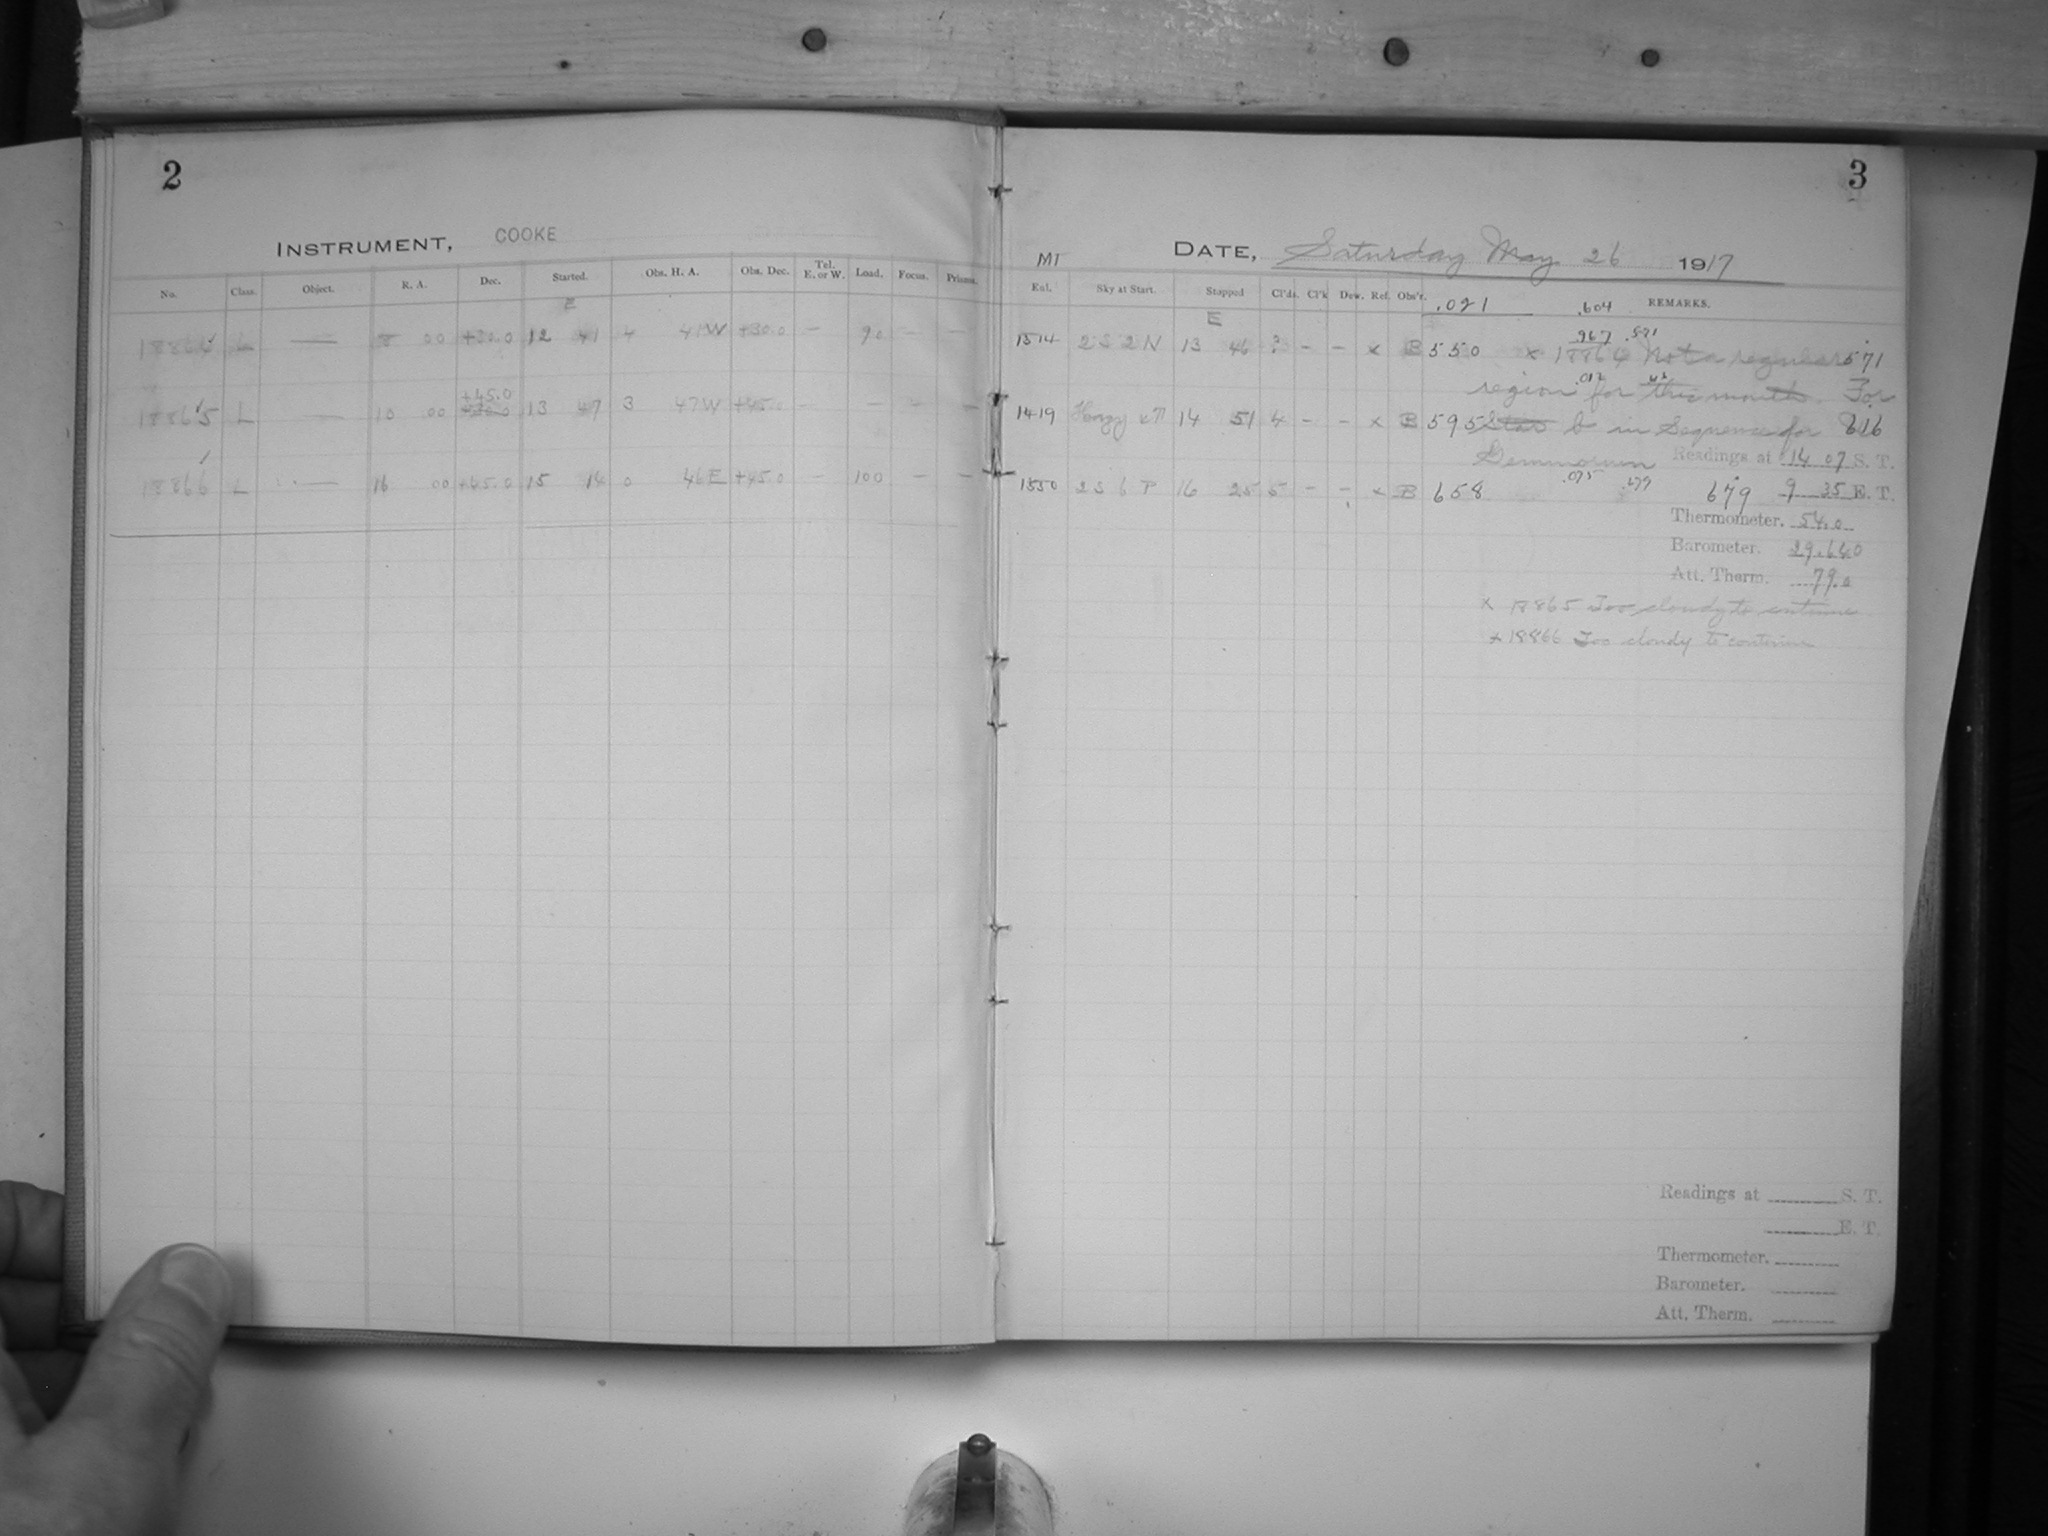 2
INSTRUMENT, COOKE
No. Class. Object. R. A. Dec. Started. Obs. H. A. Obs. Dec. Tel. E. or W. Load. Focus. Prisms.
E
18864 L — 8 00 +30.0 12 41 4 41W +30.0 — 90 — —
+45.0
18865 L — 10 00 13 47 3 47W +45.0 — — — —
18866 L — 16 00 +45.0 15 14 0 46E +45.0 — 100 — —
3
MT DATE, Saturday May 26 1917
Exl. Sky at Start. Stopped Cl'ds. Cl'k Dew. Ref. Obs'r. .021 .604 REMARKS.
E
.967 .571
1514 2S 2N 13 46 ? — — x B 550 x 18864 Not a regular 571
.012
region for this month. For
1419 Hazy 14 51 4 — — x B 595 b in Sequence for 616
Geminorum Readings at 14 07 S. T.
.075 .679
1550 2S 6P 16 25 5 — — x B 658 679 9 35 E. T.
Thermometer. 54.0
Barometer. 29.640
Att. Therm. 79.0
x 18865 Too cloudy to continue
x 18866 Too cloudy to continue
Readings at S. T.
E. T.
Thermometer.
Barometer.
Att. Therm.